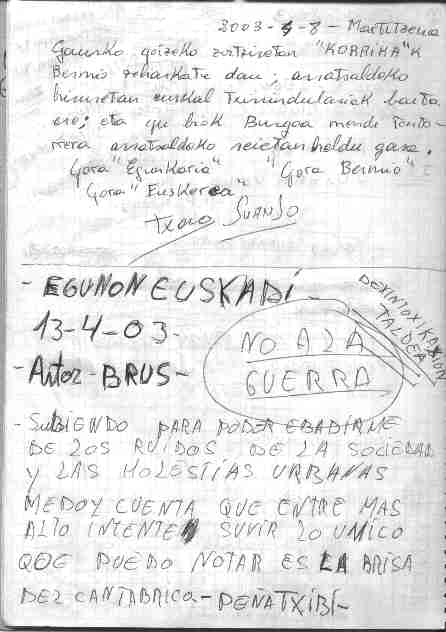 2003-4-8 - Martitzena
Gaurko goizeko zortziretan "KORRIKA"K
Bermio zeharkatu dau; arratsaldeko
hiruretan euskal Txirrindulariek baita
ere; eta gu biok Burgoa mendi tonto-
rrera arratsaldeko seietan heldu gara.
Gora "Egunkaria" "Gora Bermio"
Gora "Euskerea"
Txaro
- EGUNON EUSKADÍ -
13-4-03-
- Aitor - BRUS -
NO A LA
GUERRA
DEXINTOXIKAXION
TALDEA
- SUBIENDO PARA PODER EBADIRME
DE LOS RUIDOS DE LA SOCIEDAD
Y LAS MOLESTIAS URBANAS
MEDOY CUENTA QUE ENTRE MAS
ALTO INTENTE SUVIR LO UNICO
QUE PUEDO NOTAR ES LA BRISA
DEL CANTABRICO - PEÑATXIBI -